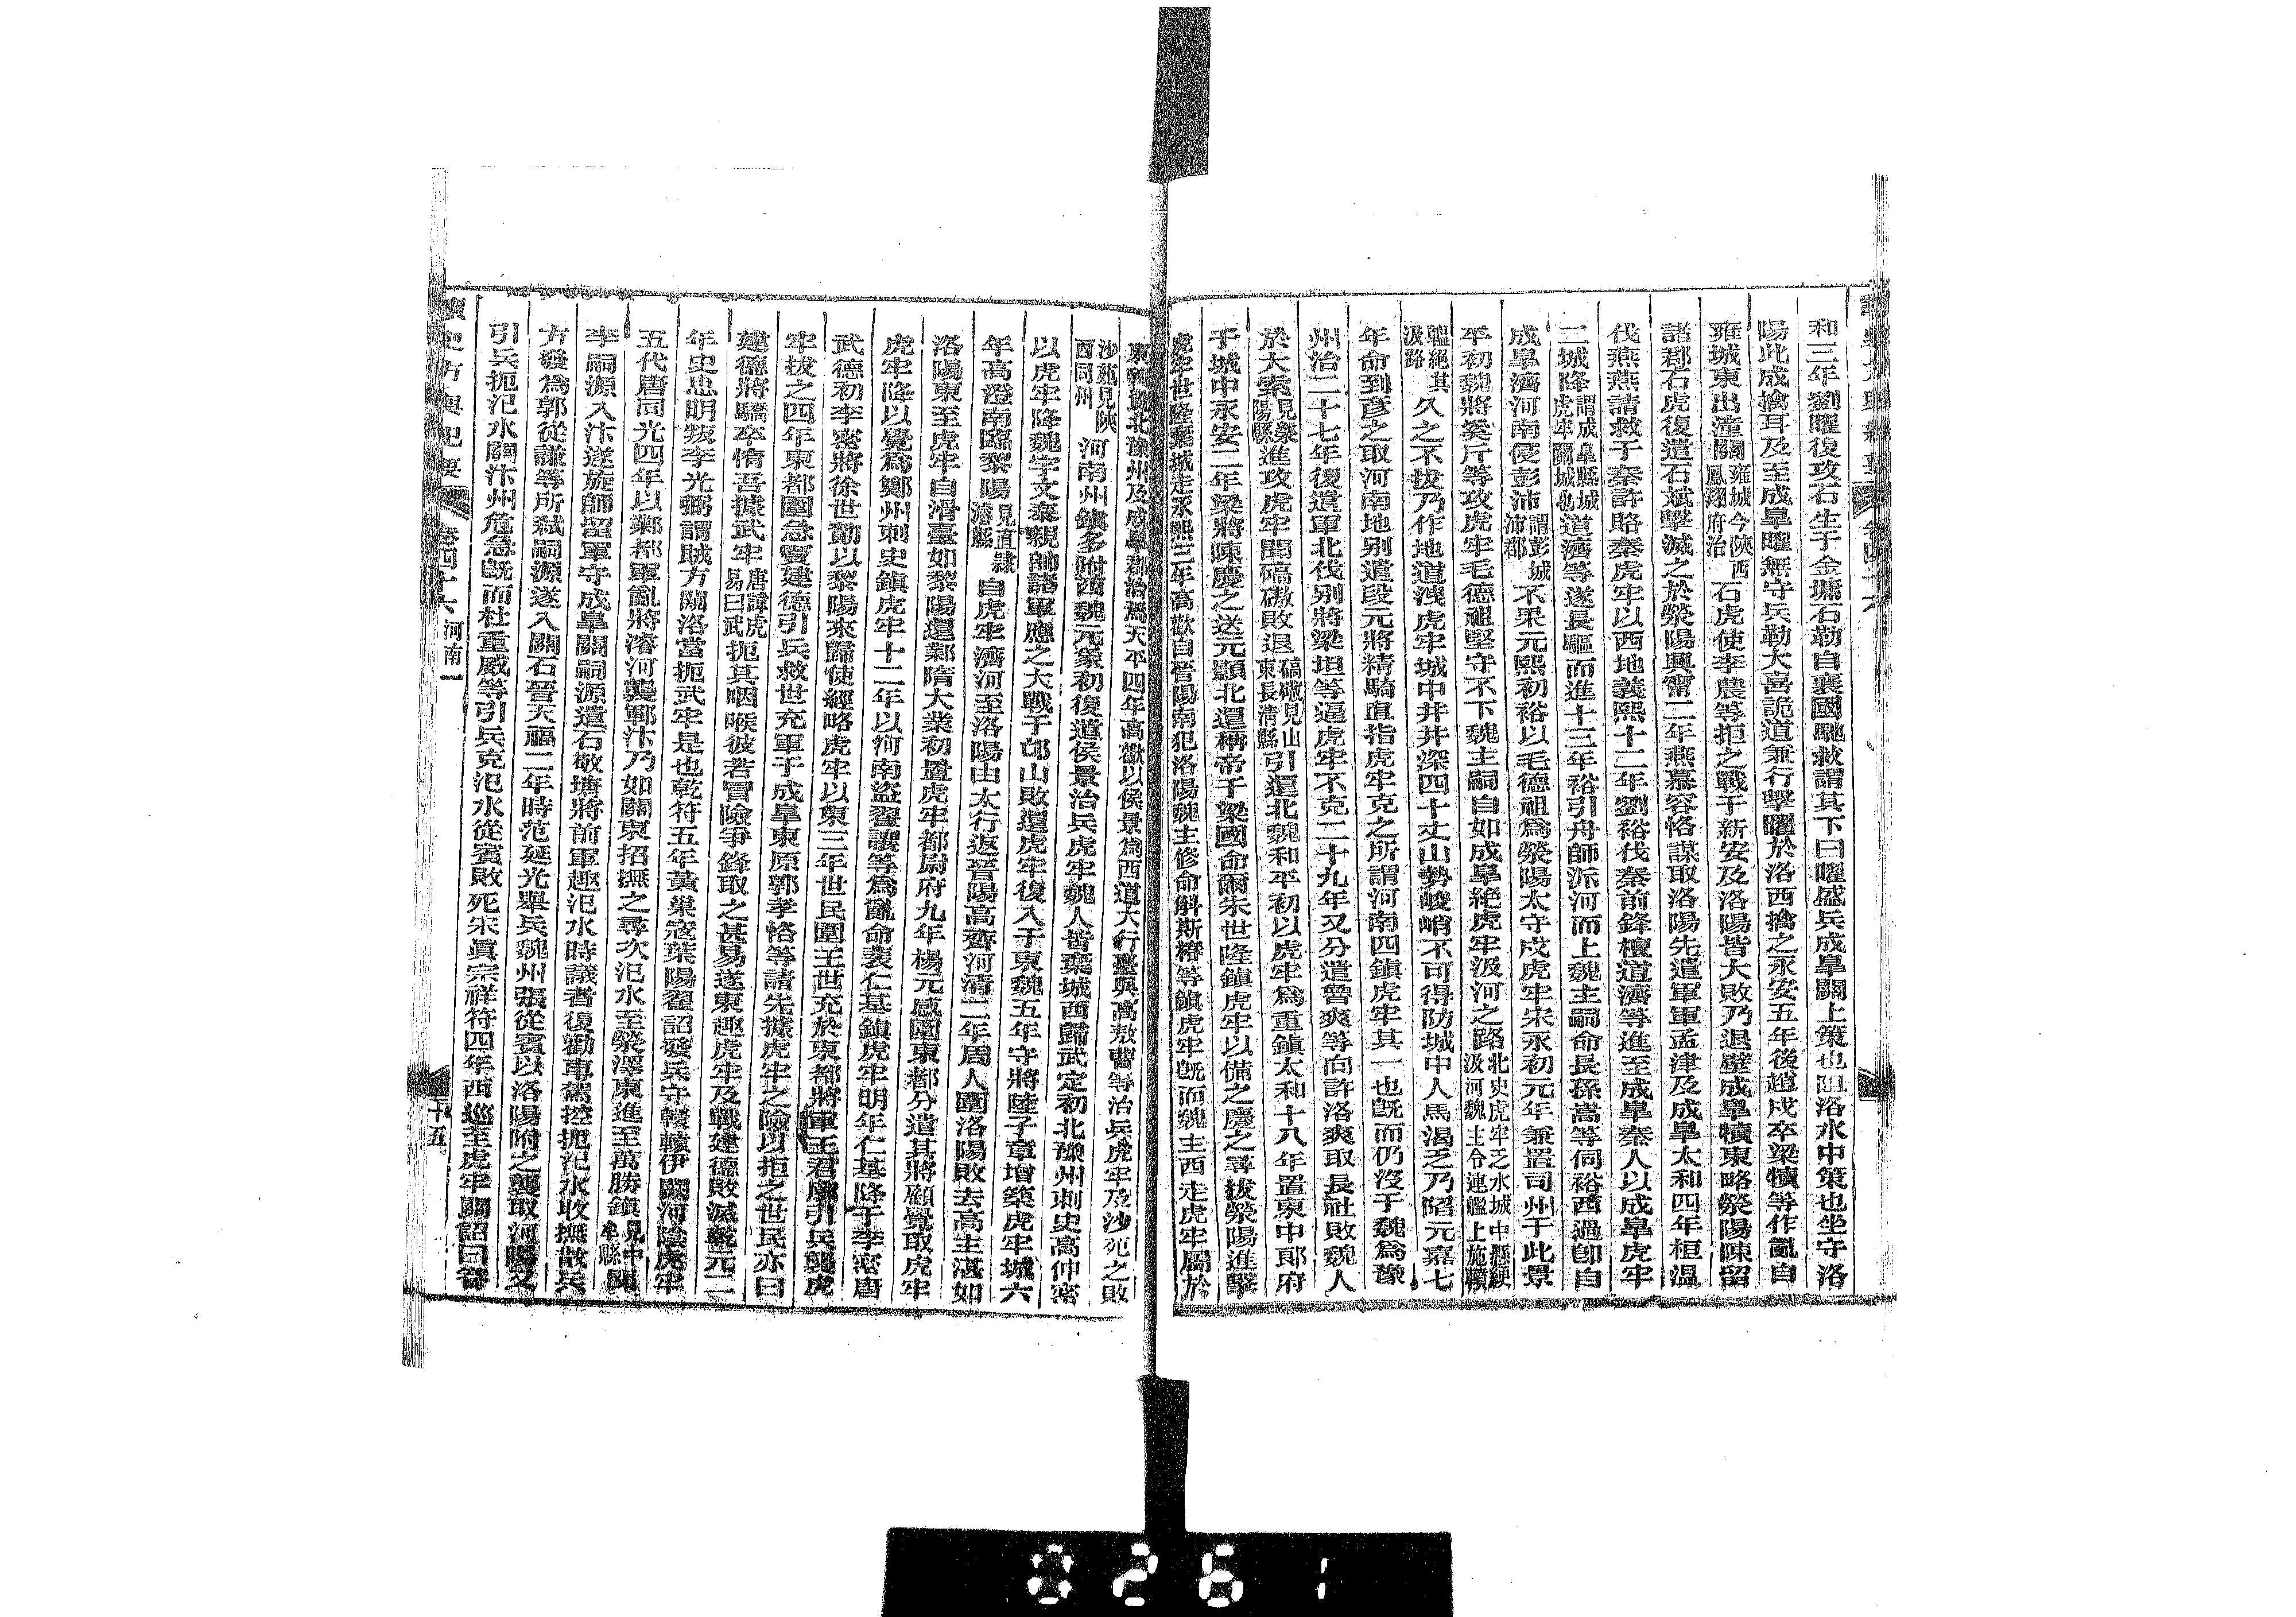 和三年劉曜復攻石生于金墉石勒自襄國馳救謂其下曰曜盛兵成臯關上策也阻洛水中策也坐守洛
陽此成擒耳及至成臯曜無守兵勒大喜詭道兼行擊曜於洛西擒之永安五年後趙戍卒梁犢等作亂自
雍城東出潼關雍城今陜西鳳翔府治石虎使李農等拒之戰于新安及洛陽皆大敗乃退壁成臯犢東略滎陽陳留
諸郡石虎復遣石斌擊滅之於滎陽興甯二年燕慕容恪謀取洛陽先遣軍軍孟津及成臯太和四年桓溫
伐燕燕請救于秦許賂秦虎牢以西地義熙十二年劉裕伐秦前鋒檀道濟等進至成臯秦人以成臯虎牢
二城降謂成臯縣城虎牢關城也道濟等遂長驅而進十三年裕引舟師泝河而上魏主嗣命長孫嵩等伺裕西過卽自
成臯濟河南侵彭沛謂彭城沛郡不果元熙初裕以毛德祖爲滎陽太守戍虎牢宋永初元年兼置司州于此景
平初魏將奚斤等攻虎牢毛德祖堅守不下魏主嗣自如成臯絕虎牢汲河之路北史虎牢乏水城中懸綆汲河魏主令連艦上施轒
轀絕其汲路久之不拔乃作地道洩虎牢城中井井深四十丈山勢峻峭不可得防城中人馬渴乏乃陷元嘉七
年命到彥之取河南地別遣段元將精騎直指虎牢克之所謂河南四鎮虎牢其一也旣而仍沒于魏爲豫
州治二十七年復遣軍北伐別將梁坦等逼虎牢不克二十九年又分遣魯爽等向許洛爽取長社敗魏人
於大索見滎陽縣進攻虎牢聞碻磝敗退碻磝見山東長淸縣引還北魏和平初以虎牢爲重鎮太和十八年置東中郞府
于城中永安二年梁將陳慶之送元顥北還稱帝于梁國命爾朱世隆鎮虎牢以備之慶之尋拔滎陽進擊
虎牢世隆棄城走永熙三年高歡自晉陽南犯洛陽魏主修命斛斯椿等鎮虎牢旣而魏主西走虎牢屬於
東魏置北豫州及成臯郡治焉天平四年高歡以侯景爲西道大行臺與高敖曹等治兵虎牢及沙苑之敗
沙苑見陝西同州河南州鎮多附西魏元象初復遣侯景治兵虎牢魏人皆棄城西歸武定初北豫州刺史高仲密
以虎牢降魏宇文泰親帥諸軍應之大戰于邙山敗還虎牢復入于東魏五年守將陸子章增築虎牢城六
年高澄南臨黎陽見直隸濬縣自虎牢濟河至洛陽由太行返晉陽高齊河淸二年周人圍洛陽敗去高主湛如
洛陽東至虎牢自滑臺如黎陽還鄴隋大業初置虎牢都尉府九年楊元感圍東都分遣其將顧覺取虎牢
虎牢降以覺爲鄭州刺史鎮虎牢十二年以河南盜翟讓等爲亂命裴仁基鎮虎牢明年仁基降于李密唐
武德初李密將徐世勣以黎陽來歸使經略虎牢以東三年世民圍王世充於東都將軍王君廓引兵襲虎
牢拔之四年東都圍急竇建德引兵救世充軍于成臯東原郭孝恪等請先據虎牢之險以拒之世民亦曰
建德將驕卒惰吾據武牢唐諱虎易曰武扼其咽喉彼若冒險爭鋒取之甚易遂東趣虎牢及戰建德敗滅乾元二
年史思明叛李光弼謂賊方闚洛當扼武牢是也乾符五年黃巢寇葉陽翟詔發兵守轘轅伊闕河陰虎牢
五代唐同光四年以鄴都軍亂將濬河襲鄆汴乃如關東招撫之尋次汜水至滎澤東進至萬勝鎮見中牟縣聞
李嗣源入汴遂旋師留軍守成臯關嗣源遣石敬瑭將前軍趣汜水時議者復勸車駕控扼汜水收撫散兵
方發爲郭從謙等所弒嗣源遂入關石晉天福二年時范延光舉兵魏州張從賓以洛陽附之襲取河陽又
引兵扼汜水關汴州危急旣而杜重威等引兵克汜水從賓敗死宋眞宗祥符四年西巡至虎牢關詔曰答
讀史方輿紀要 卷四十六 河南一 十五
0261